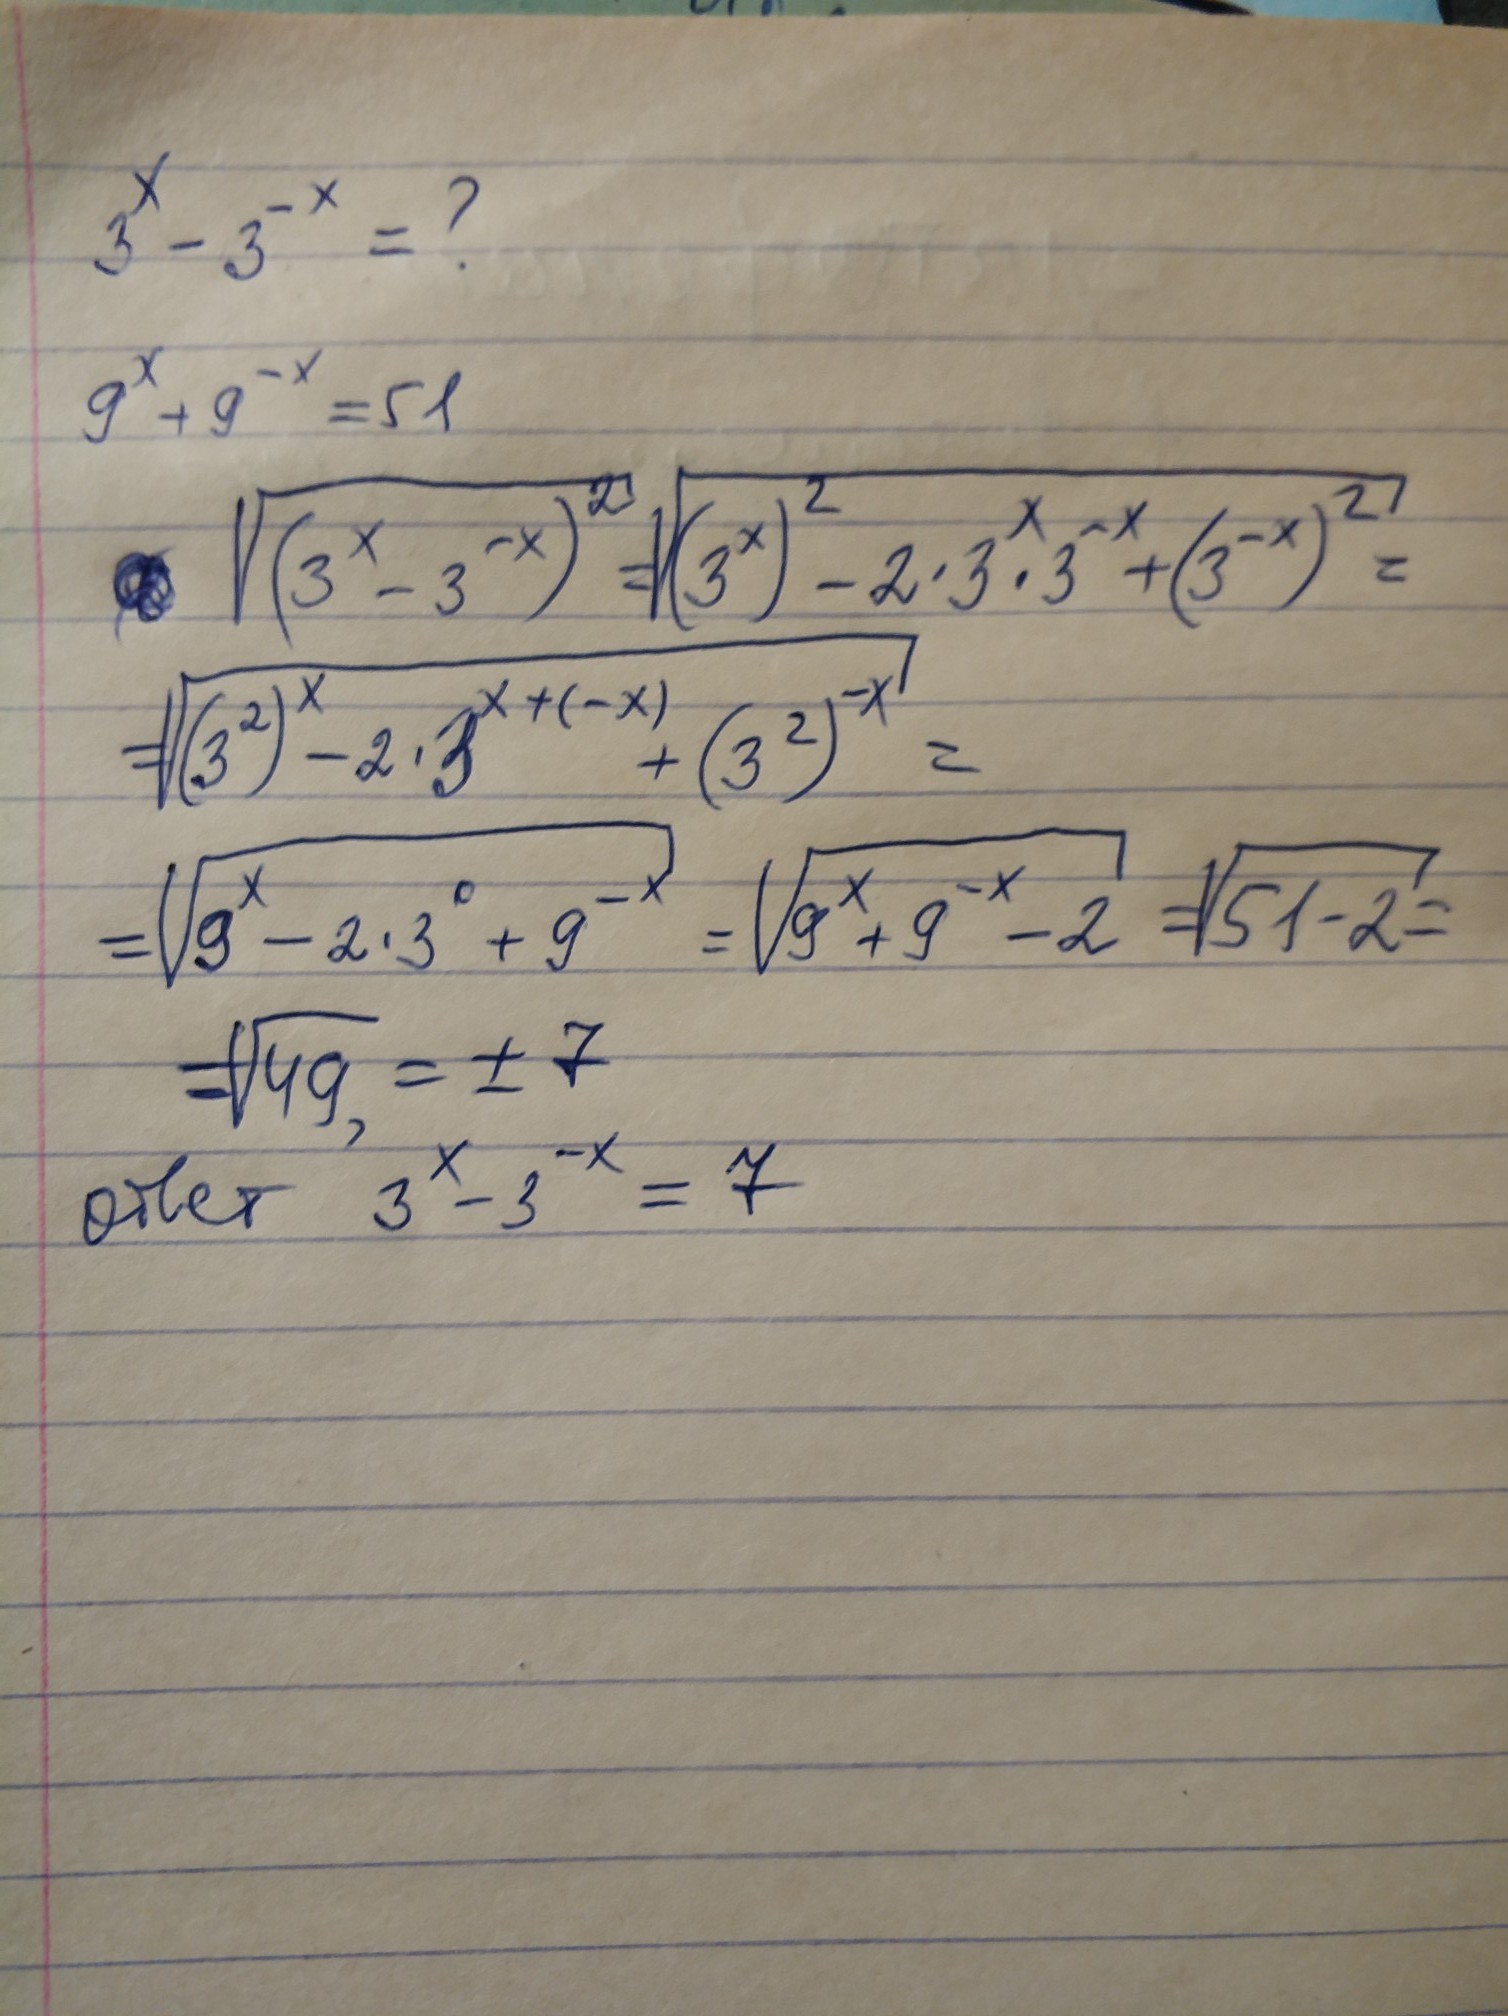 3^x - 3^-x = ?
9^x + 9^-x = 51
√(3^x - 3^-x)^2 = √(3^x)^2 - 2·3^x·3^-x + (3^-x)^2 =
= √(3^2)^x - 2·3^x+(-x) + (3^2)^-x =
= √9^x - 2·3^0 + 9^-x = √9^x + 9^-x - 2 = √51-2 =
= √49, = ± 7
ответ 3^x - 3^-x = 7